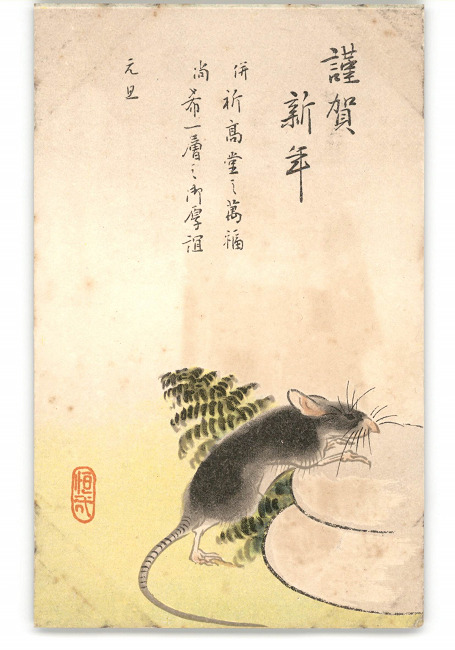 謹賀
新年
併祈高堂之萬福
尚希一層之御厚誼
元旦
恒成